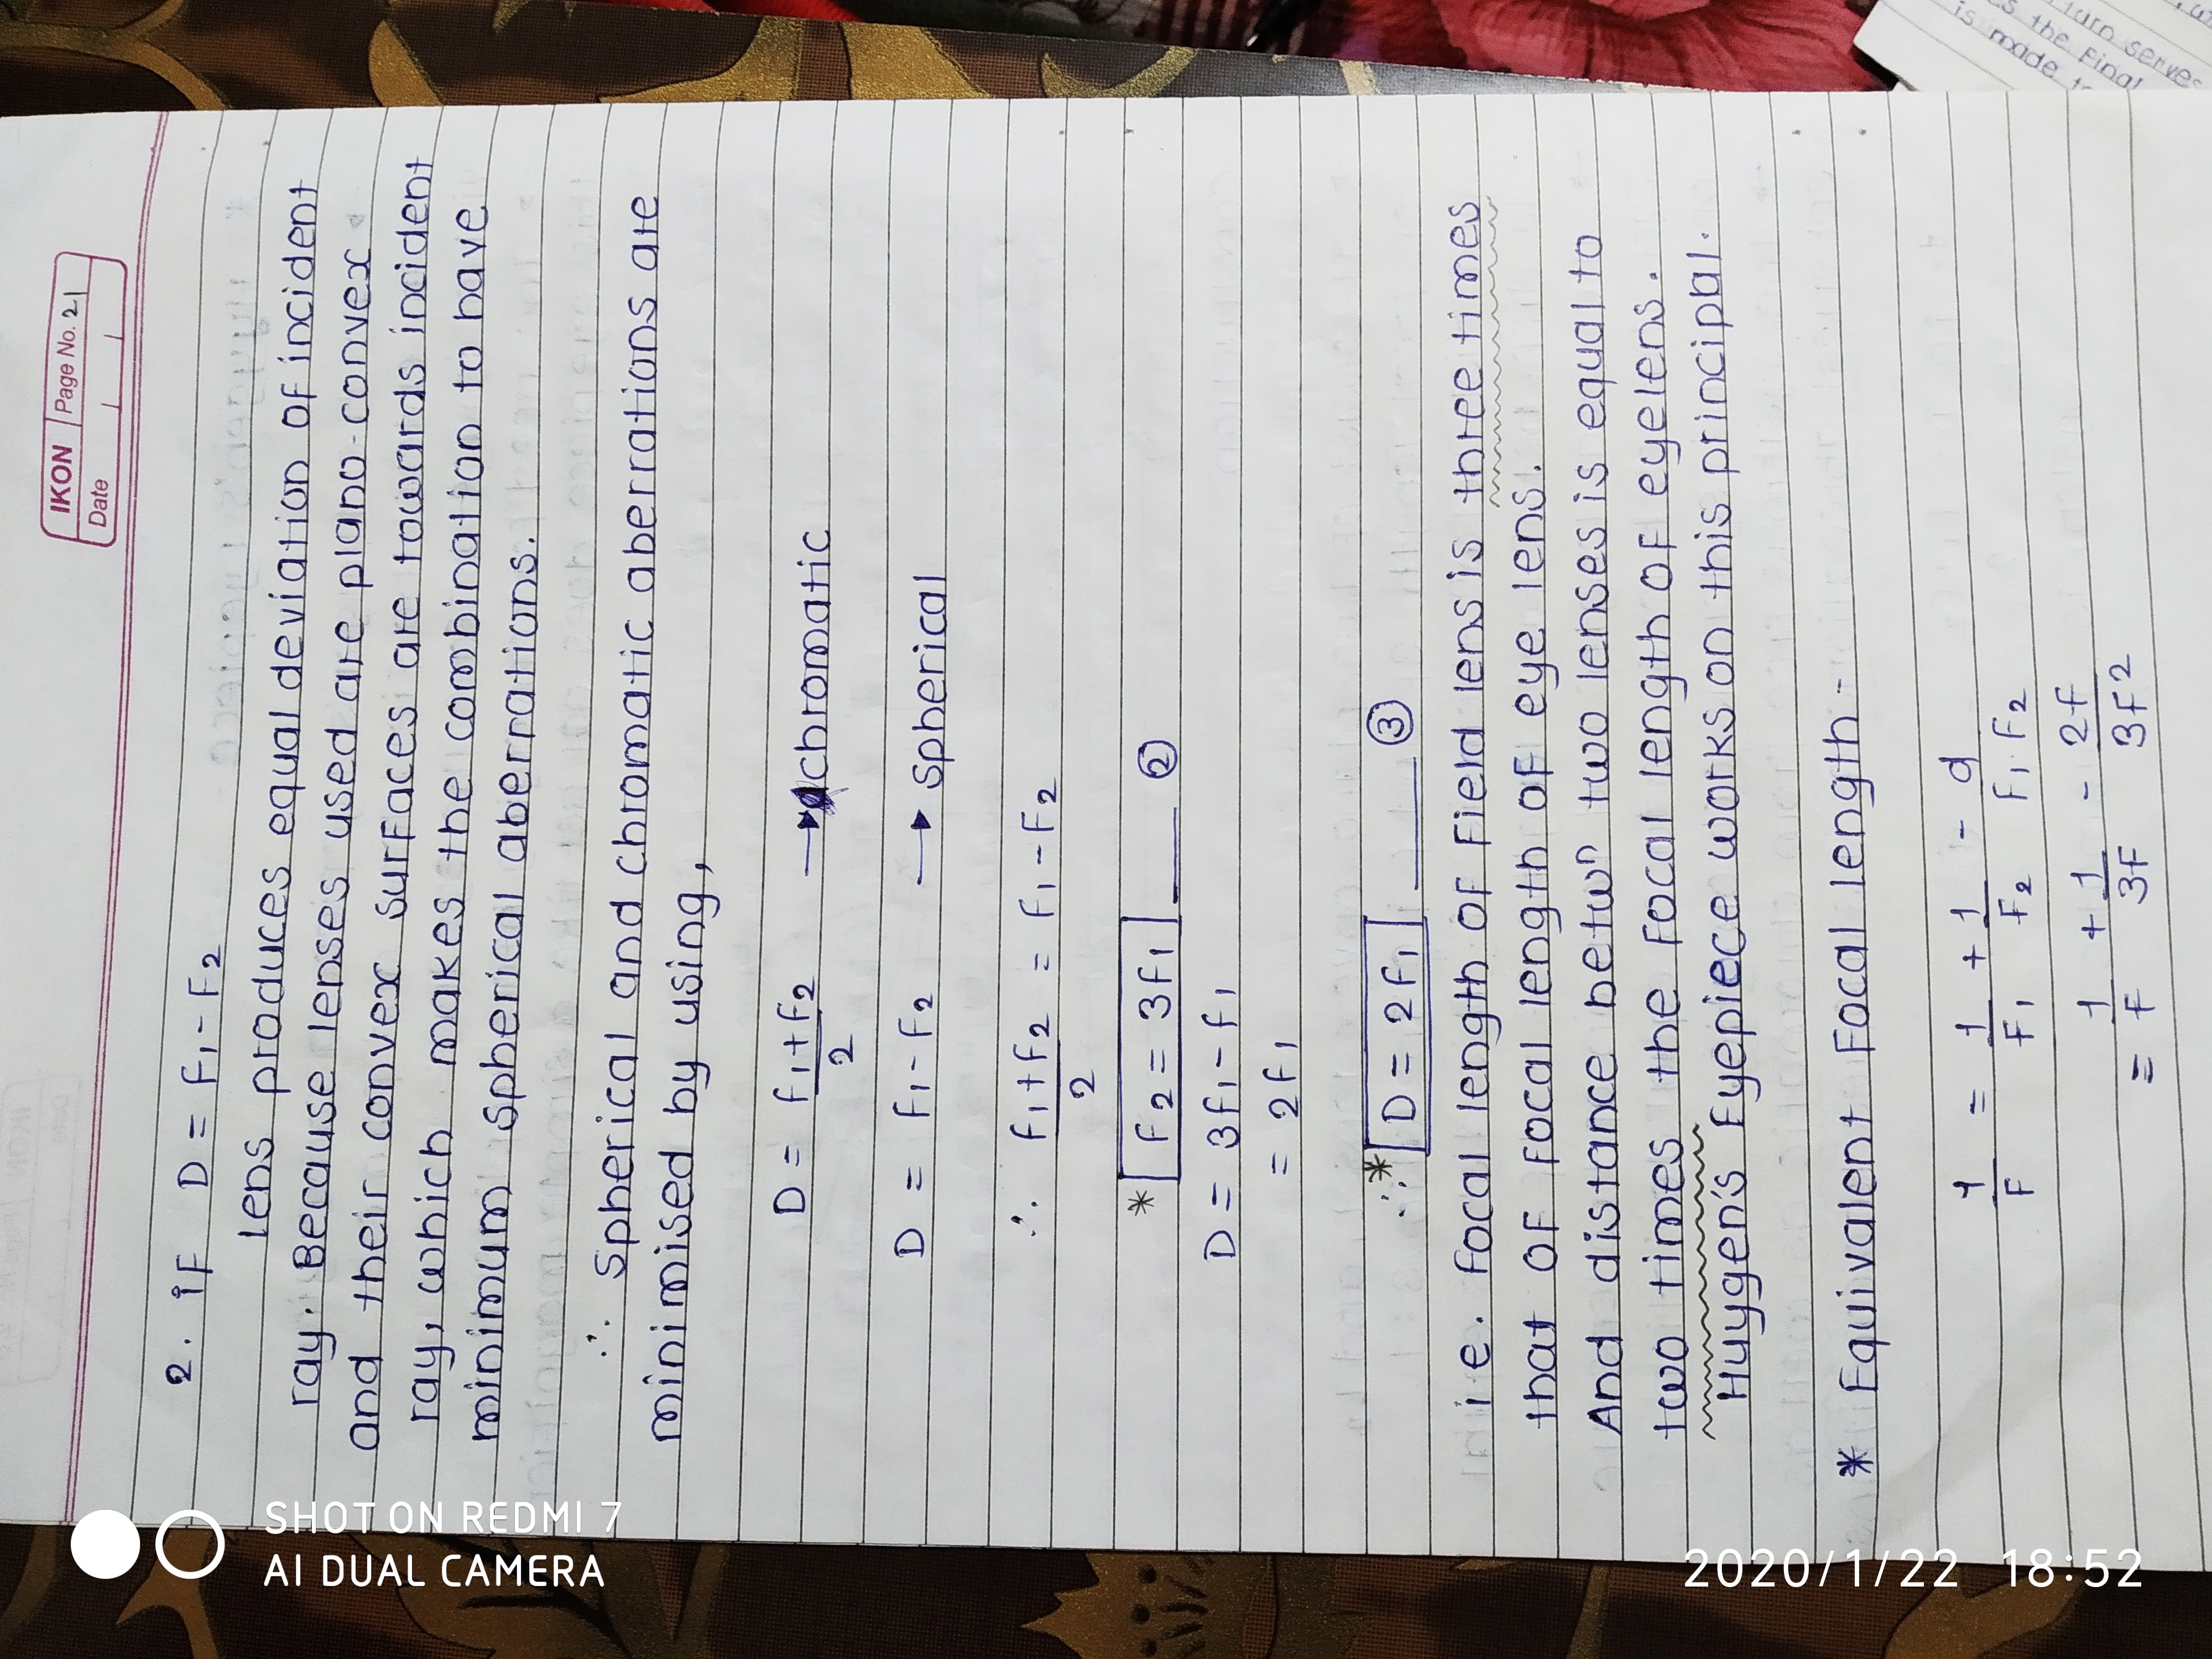 IKON Page No. 21
Date
2. iF D = F₁ - F₂
lens produces equal deviation of incident
ray. Because lenses used are plano-convex
and their convex surfaces are towards incident
ray, which makes the combination to have
minimum spherical aberrations.
∴ Spherical and chromatic aberrations are
minimised by using,
D = (f₁+f₂)/2 → chromatic
D = f₁ - F₂ → spherical
∴ (f₁+f₂)/2 = f₁ - F₂
* F₂ = 3f₁ ②
D = 3f₁ - f₁
= 2f₁
∴ * D = 2f₁ ③
i.e. Focal length of Field lens is three times
that of Focal length of eye lens.
And distance betwⁿ two lenses is equal to
two times the Focal length of eyelens.
Huygen's Eyepiece works on this principal.
* Equivalent Focal length -
1/F = 1/F₁ + 1/F₂ - d/F₁F₂
= 1/f + 1/3f - 2f/3f²
SHOT ON REDMI 7
AI DUAL CAMERA
2020/1/22 18:52
turn serves
the Final
is made